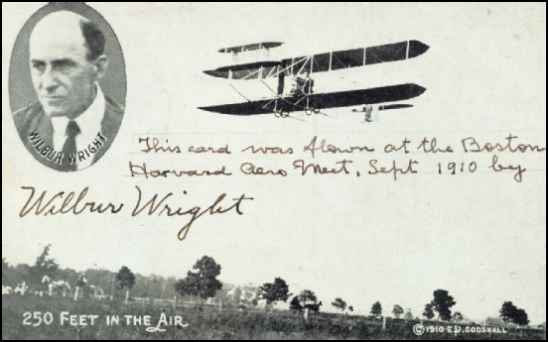 WILBUR WRIGHT
This card was flown at the Boston
Harvard Aero Meet, Sept 1910 by
Wilbur Wright
250 FEET IN THE AIR
©1910 E.D. GODSHALL